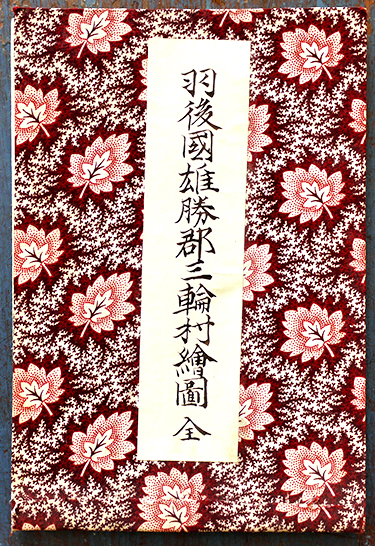 羽後國雄勝郡三輪村繪圖 全